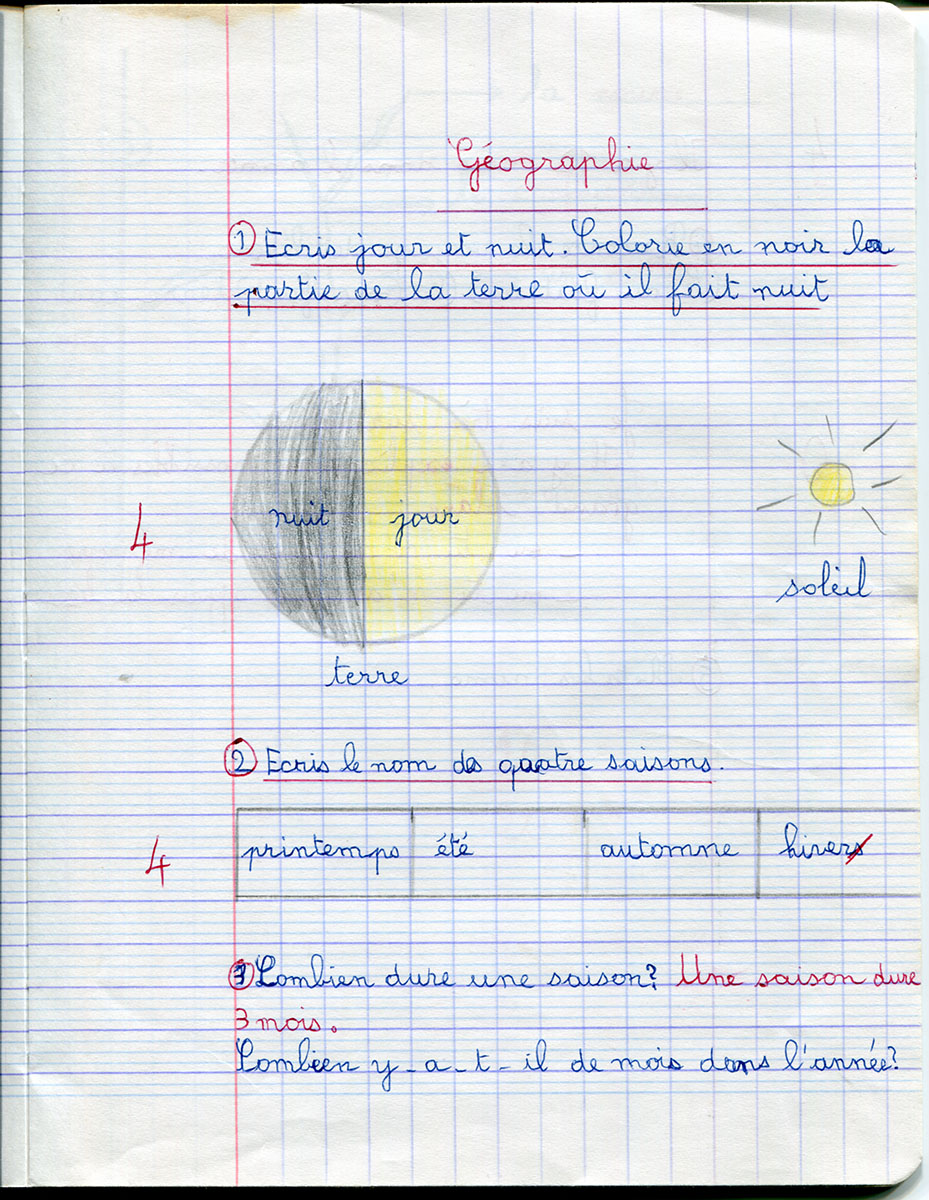 Géographie
① Ecris jour et nuit. Colorie en noir la
partie de la terre où il fait nuit
4
nuit jour
soleil
terre
② Ecris le nom des quatre saisons.
4
printemps été automne hivers
③ Combien dure une saison? Une saison dure
3 mois.
Combien y-a-t-il de mois dans l'année?